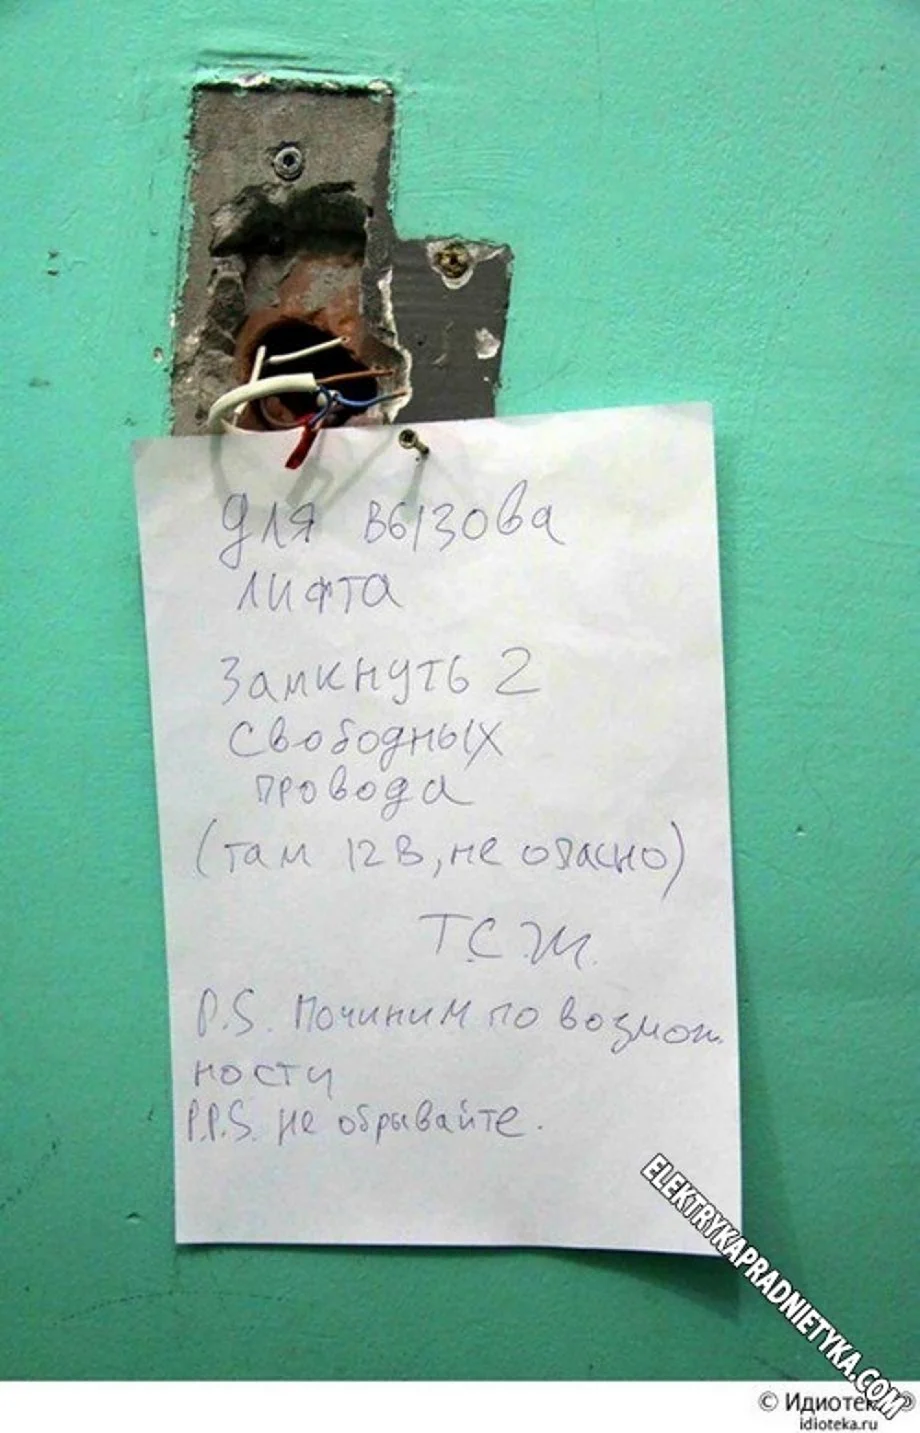 Для вызова
лифта
Замкнуть 2
свободных
провода
(там 12 В, не опасно)
Т.С.Ж.
P.S. Починим по возмож
ности
P.P.S. не обрывайте.
ELEKTRYKAPRADNIETYKA.COM
© Идиотек
idioteka.ru